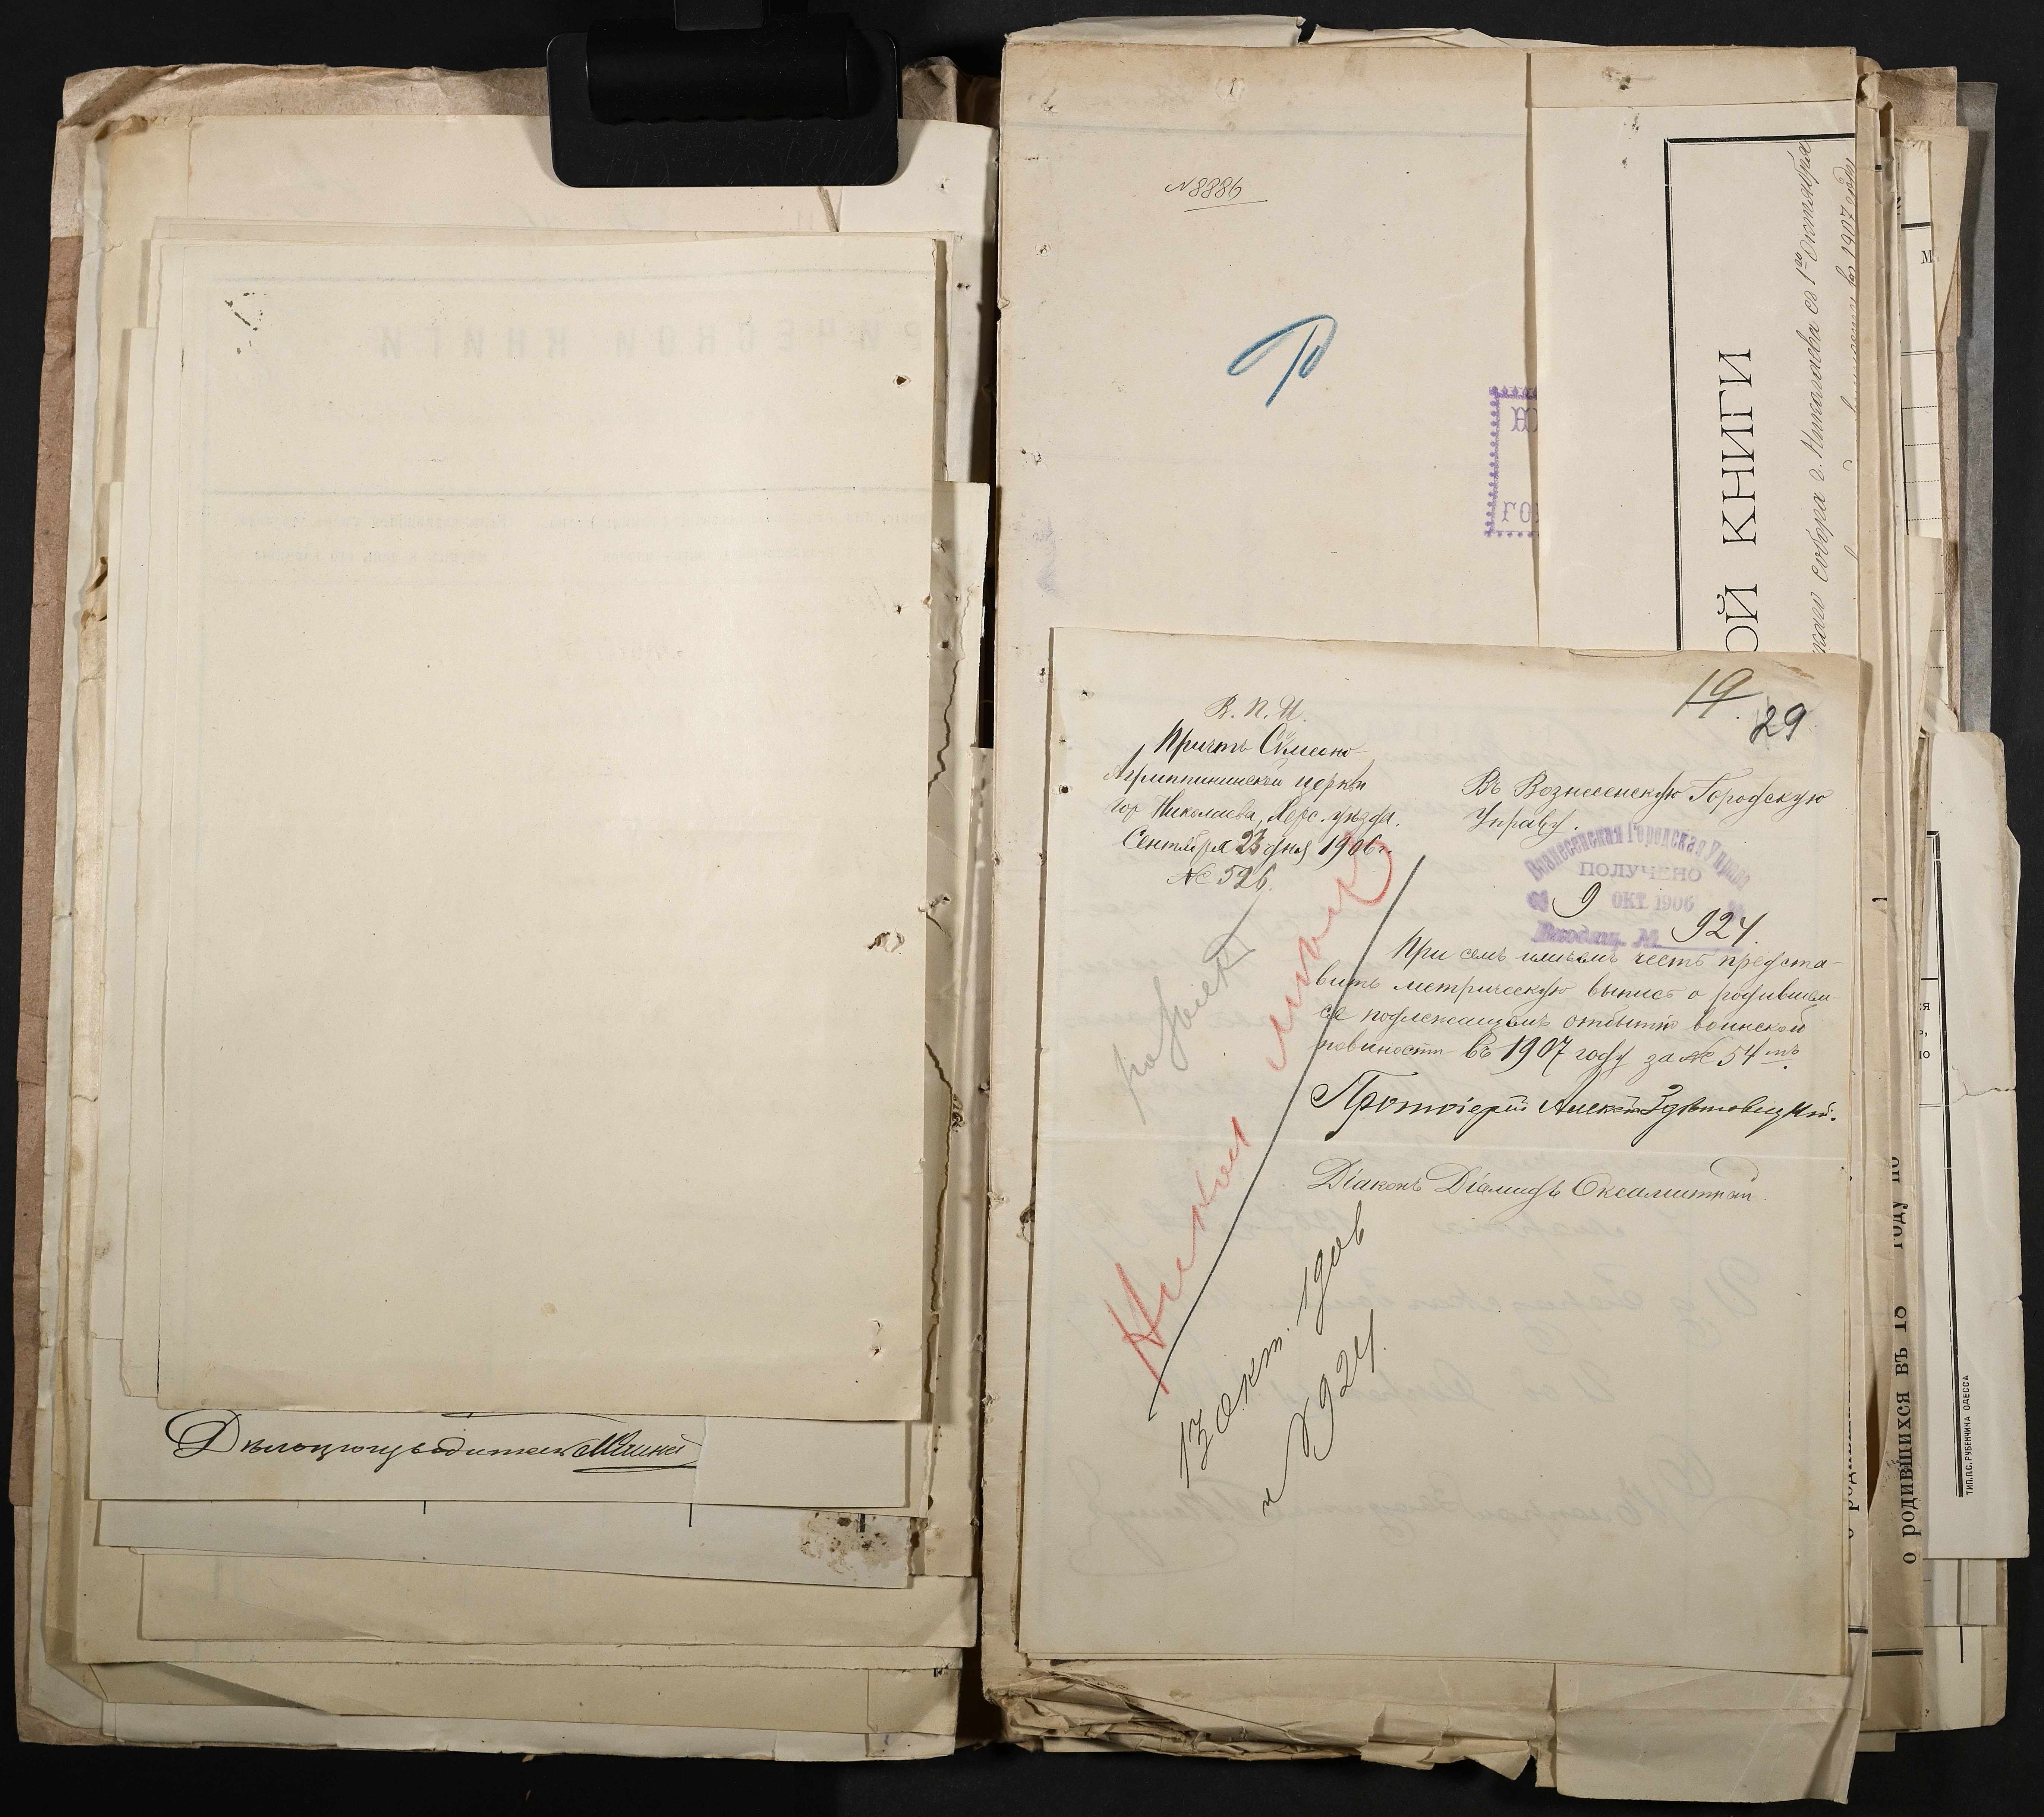 Дѣлопроизводитель
№8886
ОЙ КНИГИ
собора г. Николаева съ 1го Октября
въ 1907 году
19.
29
В. П. И.
Причтъ Сѵмеоно
Агриппининской церкви
гор Николаева, Херс. уѣзда.
Сентября 23 дня 1906 г.
№ 526.
Въ Вознесенскую Городскую
Управу.
Вознесенская Городская Управа
ПОЛУЧЕНО
9 ОКТ. 1906
Входящ. № 924.
При семъ имѣемъ честь предста-
вить метрическую выпись о родившем-
ся подлежащемъ отбытію воинской
повиности въ 1907 году за № 54 мъ.
Протоіерей Алексѣй
Діаконъ Діомидъ Оксамитный.
13 окт. 1906
№ 924.
о родившихся въ 18 году по
ТИП. П.С. РУБЕНЧИКА ОДЕССА